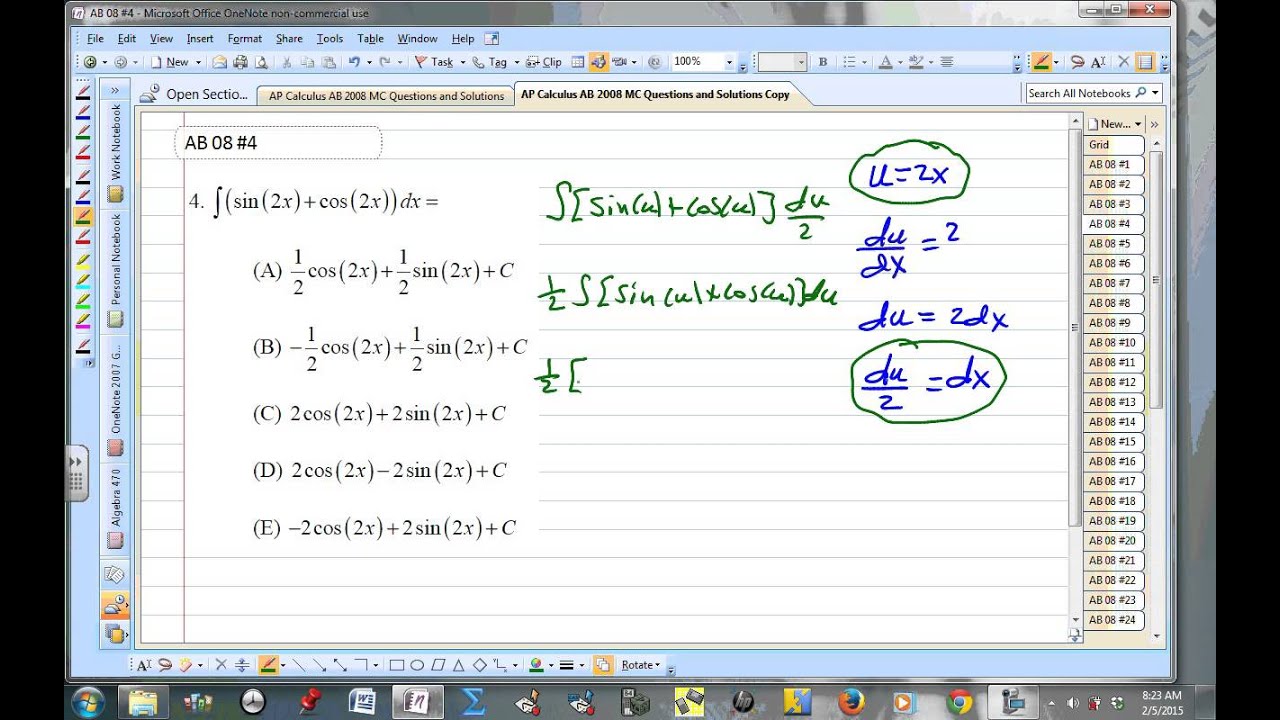 AB 08 #4 - Microsoft Office OneNote non-commercial use
File Edit View Insert Format Share Tools Table Window Help
New Task Tag Clip 100% B A
Open Sectio... AP Calculus AB 2008 MC Questions and Solutions AP Calculus AB 2008 MC Questions and Solutions Copy Search All Notebooks
Work Notebook
Personal Notebook
OneNote 2007 G...
Algebra 470
AB 08 #4
4. ∫(sin(2x)+cos(2x))dx=
(A) 1/2 cos(2x)+1/2 sin(2x)+C
(B) −1/2 cos(2x)+1/2 sin(2x)+C
(C) 2cos(2x)+2sin(2x)+C
(D) 2cos(2x)−2sin(2x)+C
(E) −2cos(2x)+2sin(2x)+C
∫[sin(u)+cos(u)] du/2
1/2 ∫[sin(u)+cos(u)]du
1/2 [
u=2x
du/dx = 2
du = 2dx
du/2 = dx
New...
Grid
AB 08 #1
AB 08 #2
AB 08 #3
AB 08 #4
AB 08 #5
AB 08 #6
AB 08 #7
AB 08 #8
AB 08 #9
AB 08 #10
AB 08 #11
AB 08 #12
AB 08 #13
AB 08 #14
AB 08 #15
AB 08 #16
AB 08 #17
AB 08 #18
AB 08 #19
AB 08 #20
AB 08 #21
AB 08 #22
AB 08 #23
AB 08 #24
Rotate
8:23 AM
2/5/2015